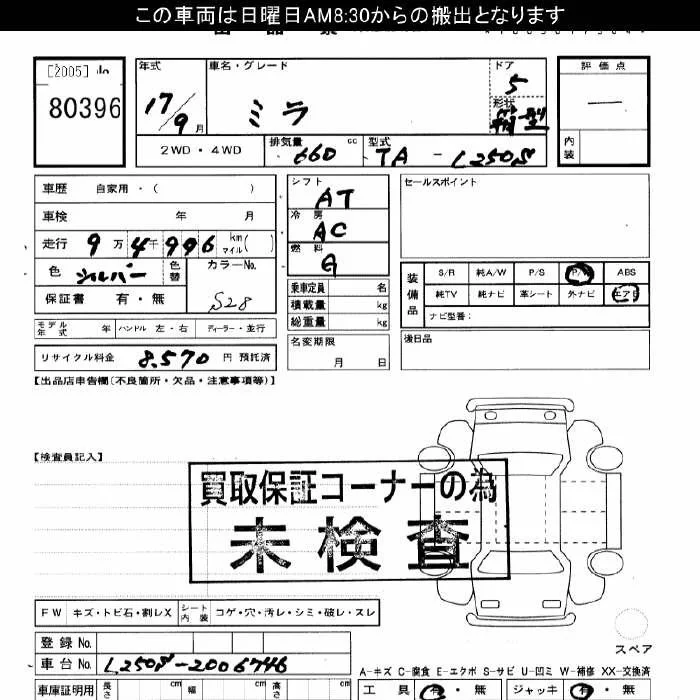 この車両は日曜日AM8:30からの搬出となります
[2005]
80396
年式
17/9月
車名・グレード
ミラ
ドア
5
形状
箱型
評価点
―
内装
2WD・4WD
排気量
660 cc
型式
TA - L250S
車歴 自家用・( )
車検 年 月
走行 9万4千996 km マイル( )
色 シルバー 色替
カラーNo. S28
保証書 有・無
シフト
AT
冷房
AC
燃料
G
セールスポイント
装備品
S/R 純A/W P/S P/W ABS
純TV 純ナビ 革シート 外ナビ エアB
ナビ型番:
乗車定員 名
積載量 kg
総重量 kg
モデル年式 年 ハンドル 左・右 ディーラー・並行
名変期限
月 日
後日品
リサイクル料金 8,570 円 預託済
【出品店申告欄(不良箇所・欠品・注意事項等)】
【検査員記入】
買取保証コーナーの為
未検査
FW キズ・トビ石・割レX シート内装 コゲ・穴・汚レ・シミ・破レ・スレ
スペア
登録No.
車台No. L250S-2006746
A-キズ C-腐食 E-エクボ S-サビ U-凹ミ W-補修 XX-交換済
車庫証明用 長さ cm 幅 cm 高さ cm
工具 有・無 ジャッキ 有・無